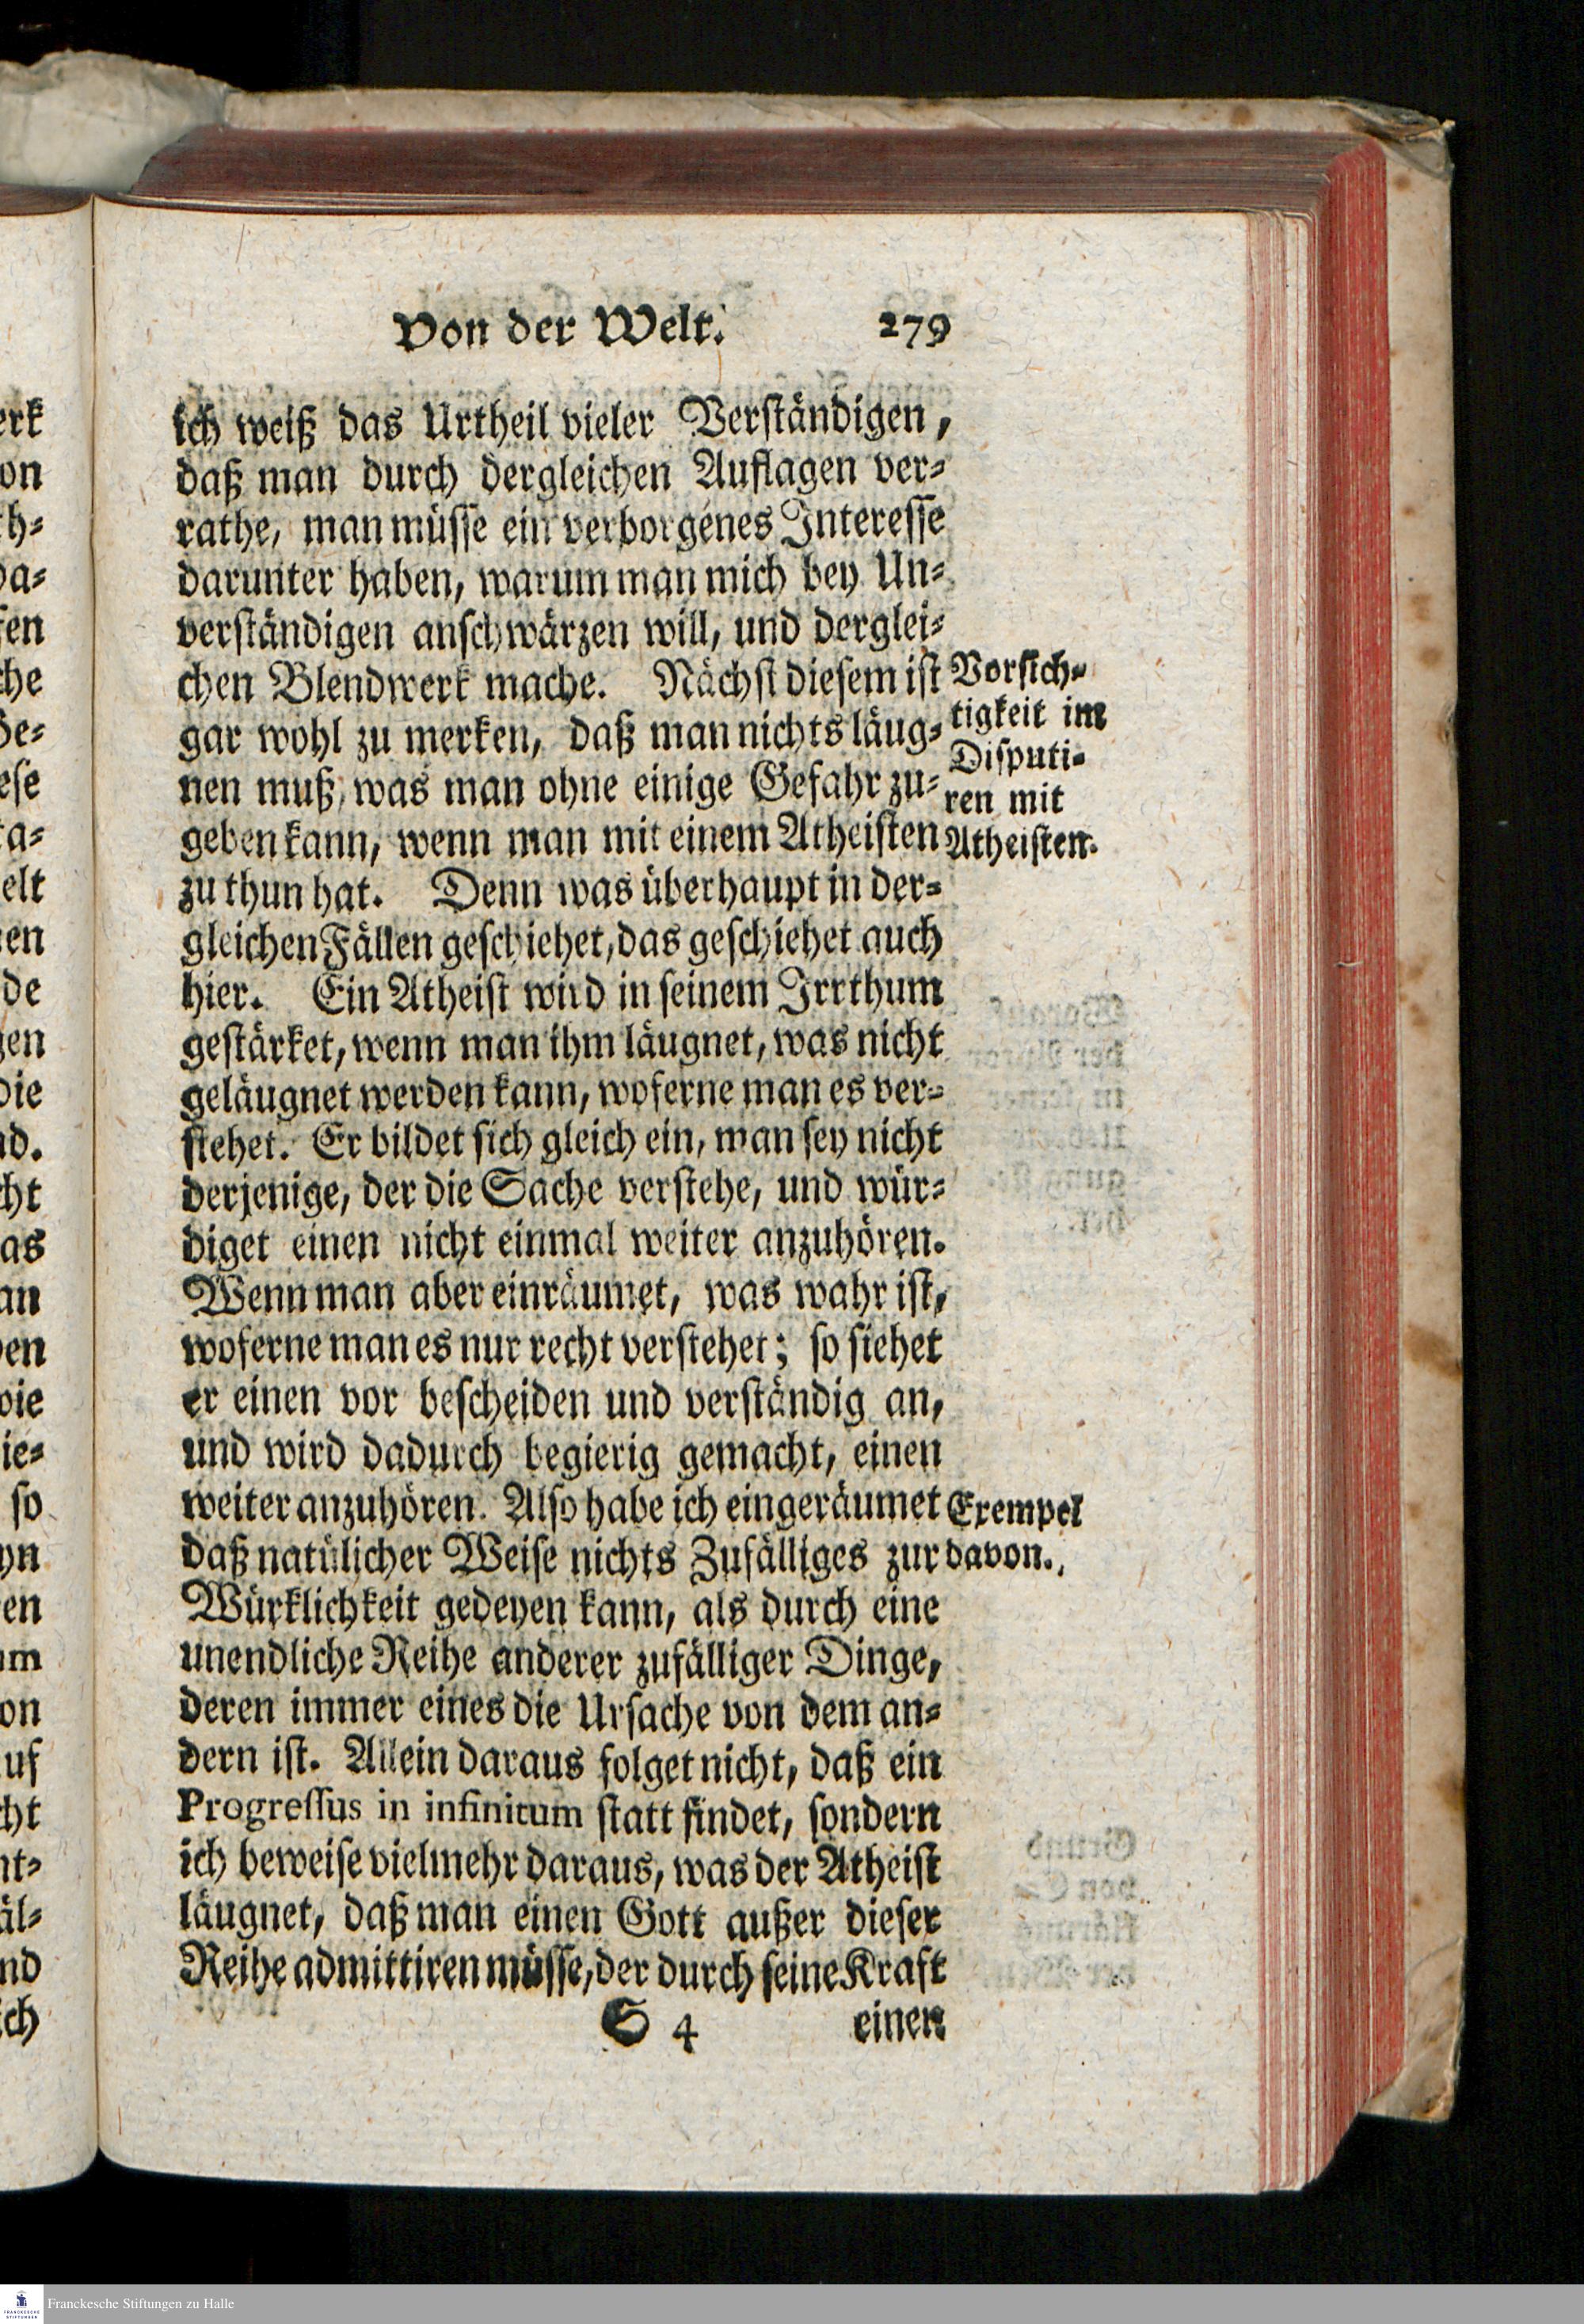 Von der Welt. 279
ich weiß das Urtheil vieler Verständigen,
daß man durch dergleichen Auflagen ver-
rathe, man müsse ein verborgenes Interesse
darunter haben, warum man mich bey Un-
verständigen anschwärzen will, und derglei-
chen Blendwerk mache. Nächst diesem ist
gar wohl zu merken, daß man nichts läug-
nen muß, was man ohne einige Gefahr zu-
geben kann, wenn man mit einem Atheisten
zu thun hat. Denn was überhaupt in der-
gleichen Fällen geschiehet, das geschiehet auch
hier. Ein Atheist wird in seinem Irrthum
gestärket, wenn man ihm läugnet, was nicht
geläugnet werden kann, woferne man es ver-
stehet. Er bildet sich gleich ein, man sey nicht
derjenige, der die Sache verstehe, und wür-
diget einen nicht einmal weiter anzuhören.
Wenn man aber einräumet, was wahr ist,
woferne man es nur recht verstehet; so siehet
er einen vor bescheiden und verständig an,
und wird dadurch begierig gemacht, einen
weiter anzuhören. Also habe ich eingeräumet
daß natülicher Weise nichts Zufälliges zur
Würklichkeit gedeyen kann, als durch eine
unendliche Reihe anderer zufälliger Dinge,
deren immer eines die Ursache von dem an-
dern ist. Allein daraus folget nicht, daß ein
Progressus in infinitum statt findet, sondern
ich beweise vielmehr daraus, was der Atheist
läugnet, daß man einen Gott außer dieser
Reihe admittiren müsse, der durch seine Kraft
S 4 einen
Vorsich-
tigkeit im
Disputi-
ren mit
Atheisten.
Exempel
davon.
Franckesche Stiftungen zu Halle